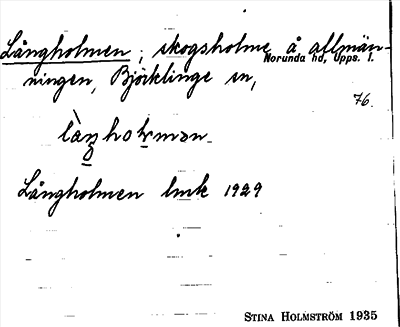 Långholmen; skogsholme å allmän-
Norunda hd, Upps. l.
ningen, Björklinge sn,
76.
Långholmen lmk 1929
STINA HOLMSTRÖM 1935